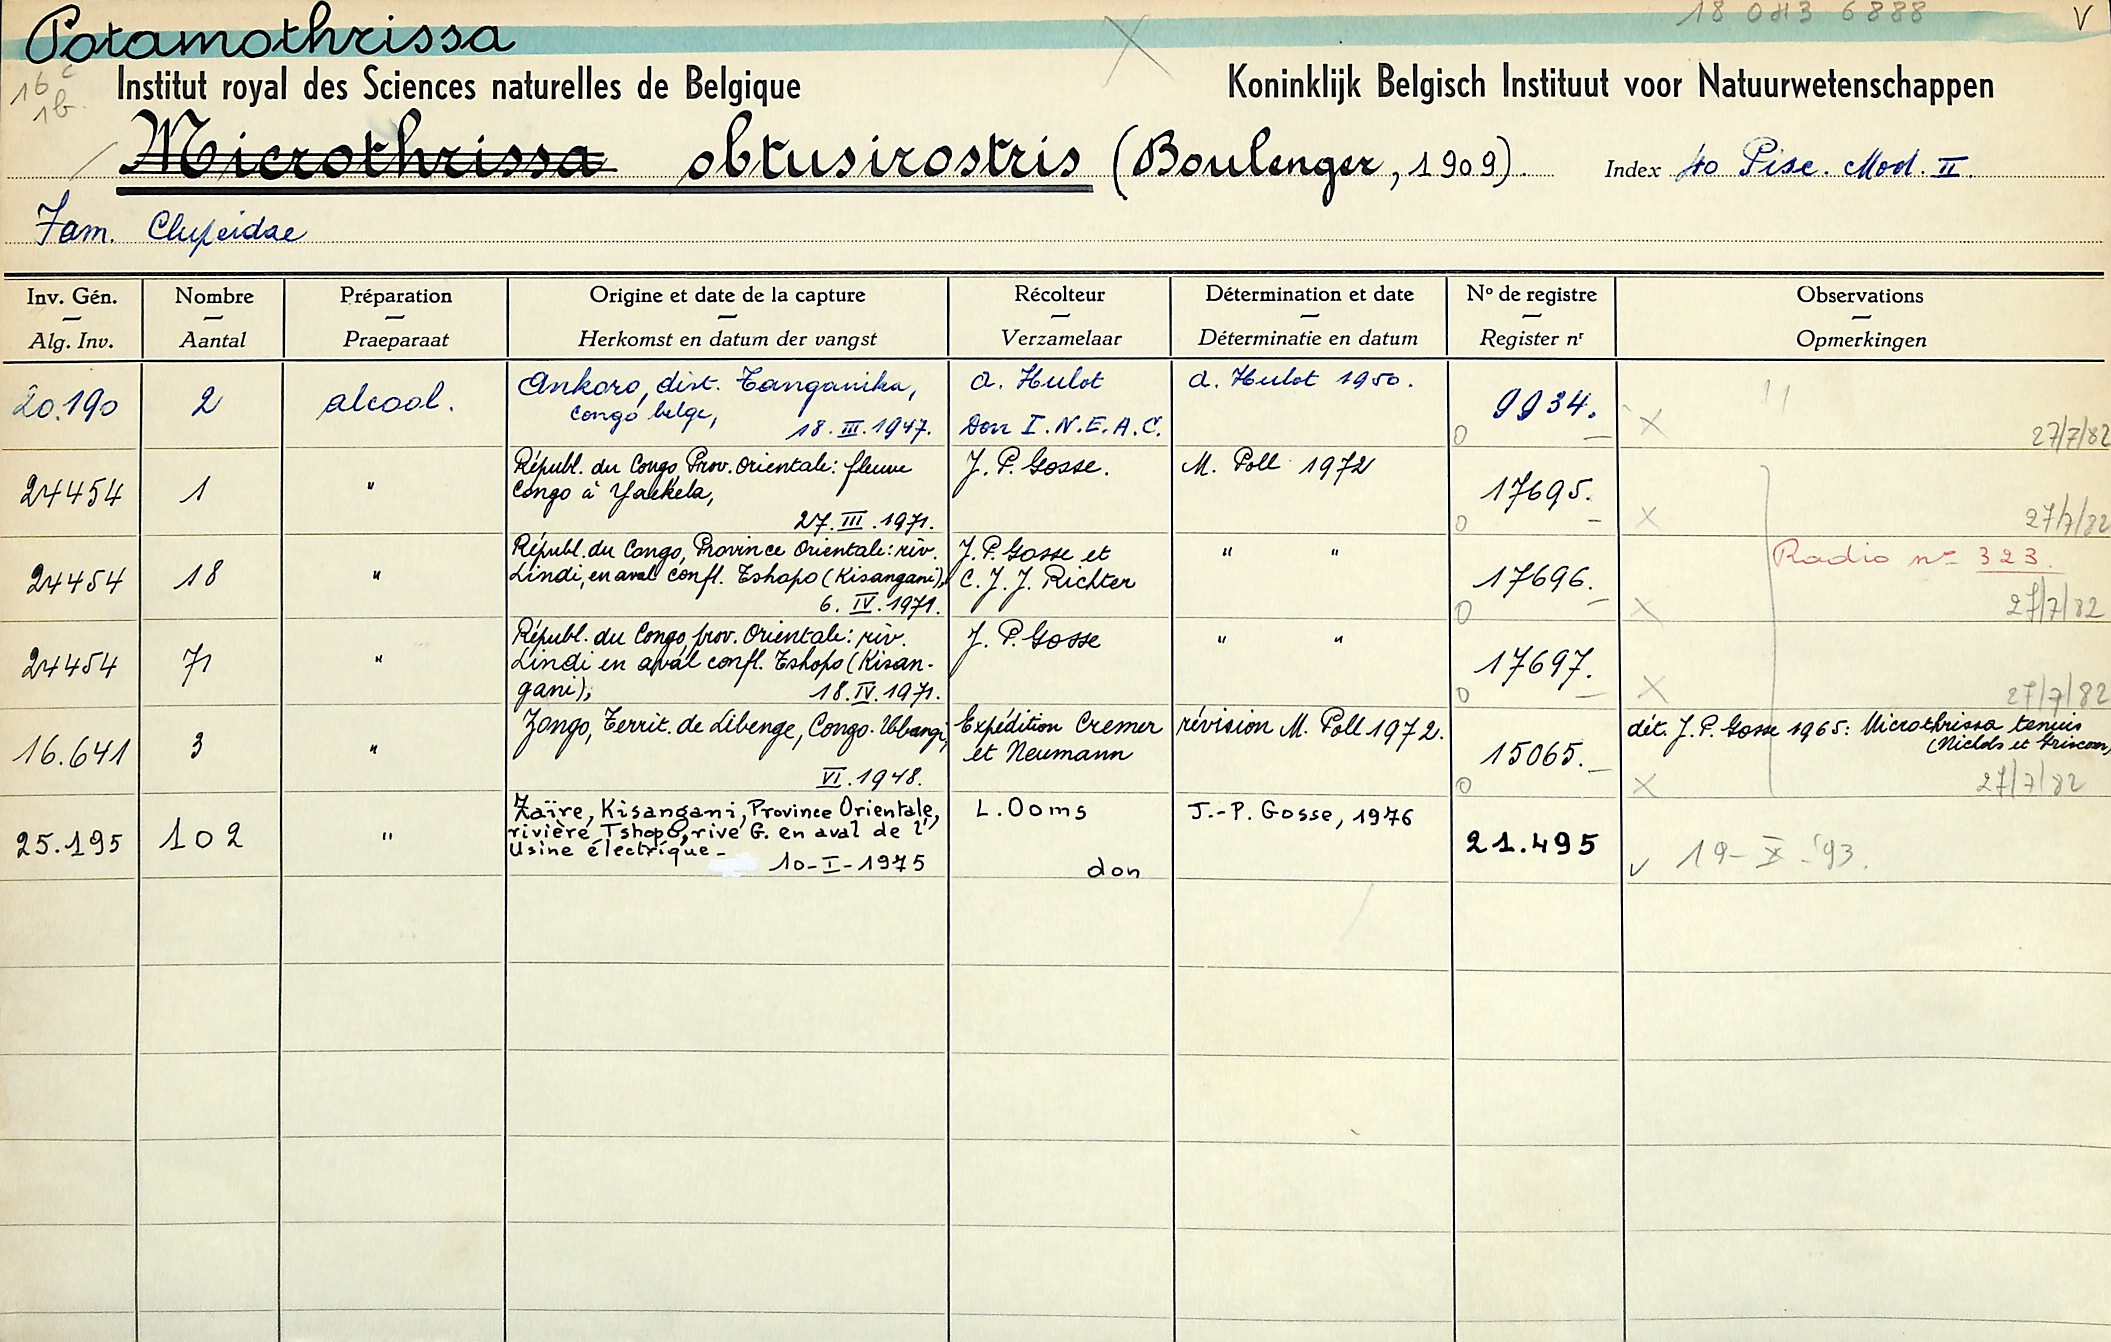 18 043 6888 V
Potamothrissa
16 c
1b.
Institut royal des Sciences naturelles de Belgique Koninklijk Belgisch Instituut voor Natuurwetenschappen
Microthrissa obtusirostris (Boulenger, 1909). Index 40 Pisc. Mod. II.
Fam. Clupeidae
Inv. Gén. Nombre Préparation Origine et date de la capture Récolteur Détermination et date Nº de registre Observations
Alg. Inv. Aantal Praeparaat Herkomst en datum der vangst Verzamelaar Déterminatie en datum Register nr Opmerkingen
20.190 2 alcool. Ankoro, dist. Tanganika, A. Hulot A. Hulot 1950. 9934.
Congo belge,
18.III.1947. Don I.N.E.A.C. 0 X 27/7/82
24454 1 " Républ. du Congo, Prov. Orientale: fleuve J. P. Gosse. M. Poll 1972 17695.
Congo à Yaekela,
27.III.1971. 0 X 27/7/82
24454 18 " Républ. du Congo, Province Orientale: riv. J. P. Gosse et " " 17696. Radio nº 323.
Lindi, en aval confl. Tshopo (Kisangani), C. J. J. Richter
6.IV.1971. 0 X 27/7/82
24454 71 " Républ. du Congo, prov. Orientale: riv. J. P. Gosse " " 17697.
Lindi en aval confl. Tshopo (Kisan-
gani), 18.IV.1971. 0 X 27/7/82
16.641 3 " Zongo, Territ. de Libenge, Congo-Ubbangi, Expédition Cremer révision M. Poll 1972. 15065. dét. J. P. Gosse 1965: Microthrissa tenuis
et Neumann (Nichols et Griscom)
VI.1948. 0 X 27/7/82
25.195 102 " Zaïre, Kisangani, Province Orientale, L. Ooms J.-P. Gosse, 1976 21.495
rivière Tshopo, rive G. en aval de l'
Usine électrique-
10-I-1975 don v 19-X-'93.